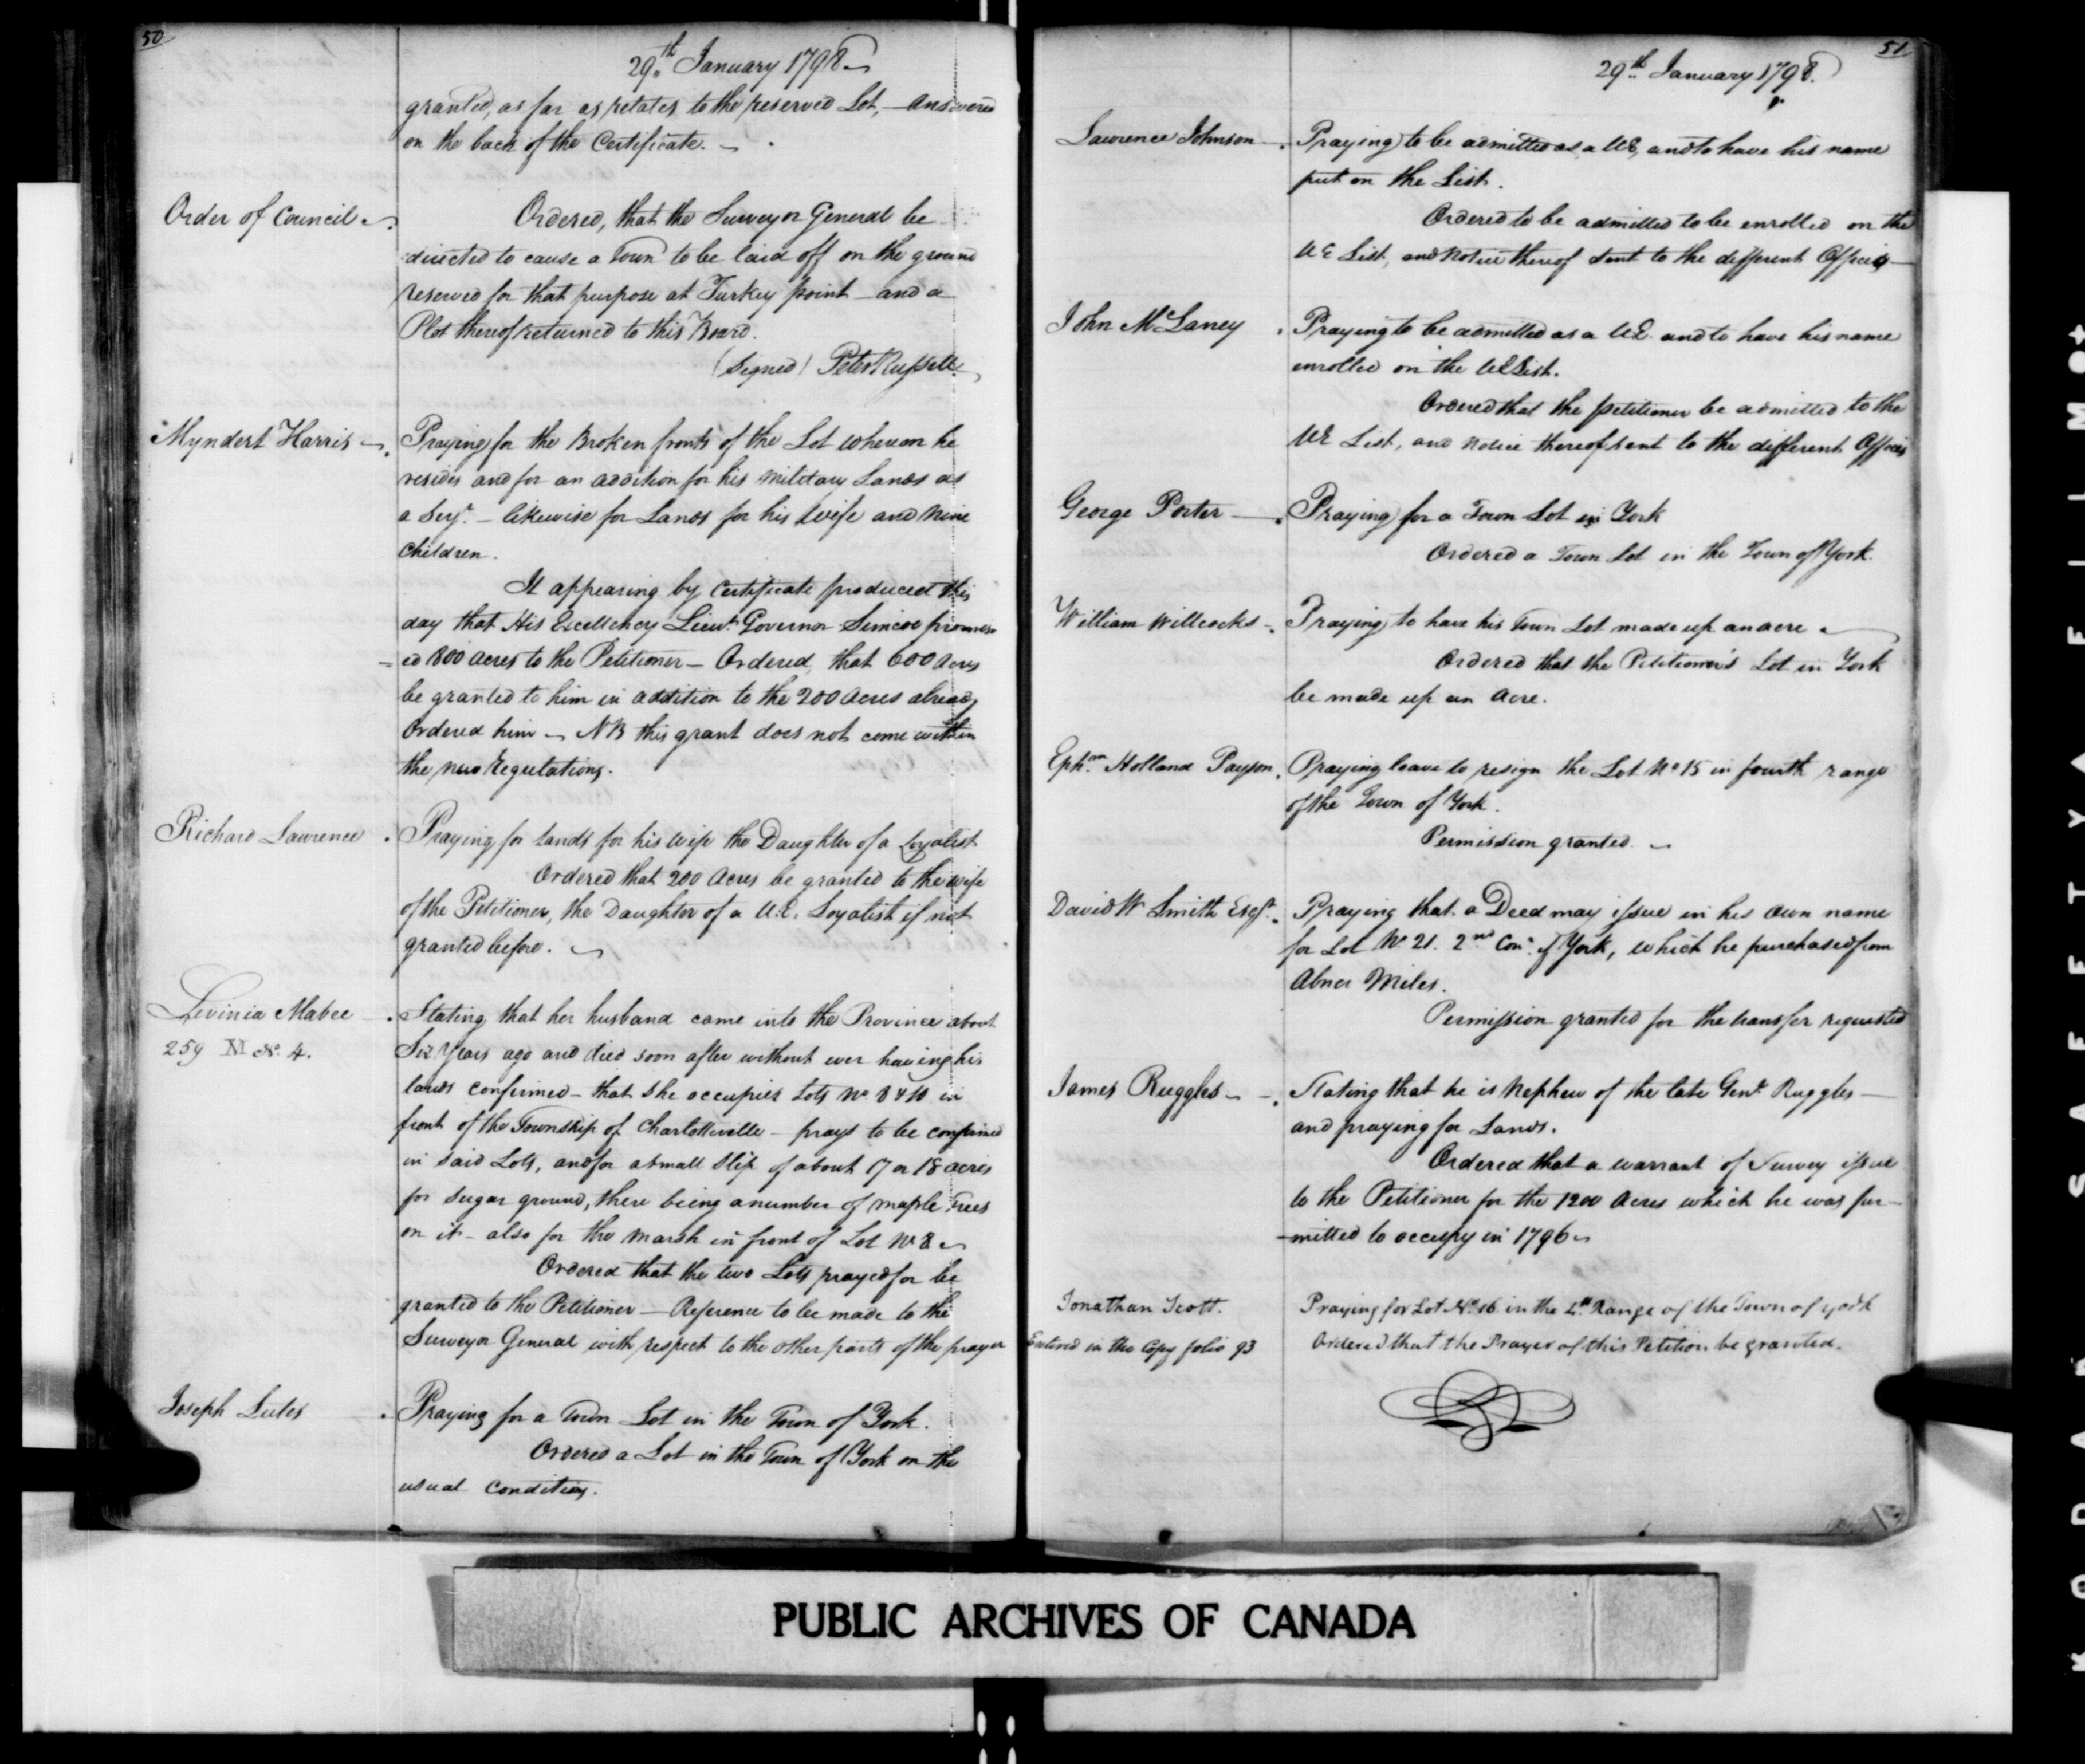 50
29th January 1798
granted, as far as relates to the reserved Lot, — answered
on the back of the Certificate. —
Order of Council
Ordered, that the Surveyor General be
directed to cause a Town to be laid off on the ground
reserved for that purpose at Turkey point — and a
Plot thereof returned to this Board.
(Signed) Peter Russell
Myndert Harris —
Praying for the Broken fronts of the Lot whereon he
resides and for an addition for his military Lands as
a Serjt. — likewise for Lands for his wife and nine
children.
It appearing by Certificate produced this
day that His Excellency Lieut. Governor Simcoe promis-
-ed 800 acres to the Petitioner — Ordered, that 600 Acres
be granted to him in addition to the 200 acres already
Ordered him — NB this grant does not come within
the new regulations.
Richard Lawrence
Praying for Lands for his wife the Daughter of a Loyalist
Ordered that 200 Acres be granted to the wife
of the Petitioner, the Daughter of a U.E. Loyalist if not
granted before.
Levinia Mabee
259 M No. 4.
Stating that her husband came into the Province about
Six Years ago and died soon after without ever having his
lands confirmed — that she occupies Lots No 8 & 10 in
front of the Township of Charlotteville — prays to be confirmed
in said Lots, and for a small slip of about 17 or 18 acres
for sugar ground, there being a number of maple Trees
on it — also for the marsh in front of Lot No 8
Ordered that the two Lots prayed for be
granted to the Petitioner — Reference to be made to the
Surveyor General with respect to the other parts of the prayer
Joseph Lutes
Praying for a Town Lot in the Town of York.
Ordered a Lot in the Town of York on the
usual conditions.
51
29th January 1798.
Lawrence Johnson
Praying to be admitted as a UE, and to have his name
put on the List.
Ordered to be admitted to be enrolled on the
UE List, and notice thereof sent to the different Offices —
John McLaney
Praying to be admitted as a UE. and to have his name
enrolled on the UE List.
Ordered that the petitioner be admitted to the
UE List, and notice thereof sent to the different Offices
George Porter —
Praying for a Town Lot in York
Ordered a Town Lot in the Town of York.
William Willcocks
Praying to have his Town Lot made up an acre
Ordered that the Petitioner's Lot in York
be made up an Acre.
Ephm. Holland Payson
Praying leave to resign the Lot No 15 in fourth range
of the Town of York.
Permission granted. —
David W Smith Esqr.
Praying that a Deed may issue in his own name
for Lot No 21. 2nd Con. of York, which he purchased from
Abner Miles.
Permission granted for the transfer requested
James Ruggles —
Stating that he is Nephew of the late Genl. Ruggles —
and praying for Lands.
Ordered that a warrant of Survey issue
to the Petitioner for the 1200 Acres which he was per-
-mitted to occupy in 1796
Jonathan Scott.
Entered in the Copy folio 93
Praying for Lot No. 16 in the 4th Range of the Town of york
Ordered that the Prayer of this Petition be granted.
PUBLIC ARCHIVES OF CANADA